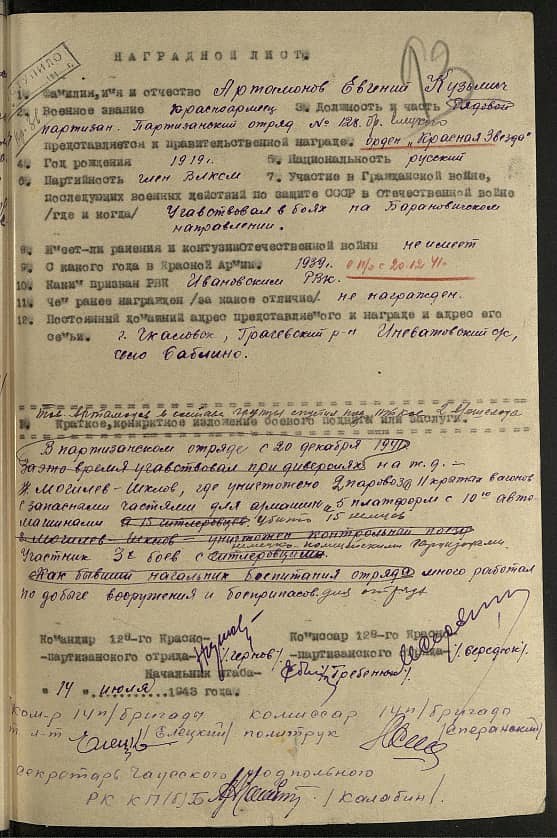 НАГРАДНОЙ ЛИСТ.
1. Фамилия, имя и отчество Артамонов Евгений Кузьмич
2. Военное звание красноармеец 3. Должность и часть Рядовой
партизан. Партизанский отряд № 128.
представляется к правительственной награде. орден "Красная Звезда"
4. Год рождения 1919 г. 5. Национальность русский
6. Партийность член ВЛКСМ 7. Участие в Гражданской войне,
последующих военных действий по защите СССР в Отечественной войне
/где и когда/ Учавствовал в боях на Барановичском
направлении.
8. Имеет-ли ранения и контузии Отечественной войны не имеет
9. С какого года в Красной Армии. 1939 г. в п/о с 20.12.41 г.
10. Каким призван РВК Ивановским РВК.
11. Чем ранее награжден /за какое отличие/. не награжден.
12. Постоянный домашний адрес представляемого к награде и адрес его
семьи. г. Чкаловск, Грачевский р-н с/с,
село Бабкино.
Тов. Артамонов в составе группы спустил под откос 2 эшелона
1. Краткое, конкретное изложение боевого подвига или заслуги.
В партизанском отряде с 20 декабря 1941
За это время учавствовал при диверсиях на ж.д. –
Могилев-Шклов, где уничтожено 2 паровоза 11 крытых вагонов
с запасными частями для армошин 5 платформ с 10ю авто-
машинами и 15 гитлеровцев. Убито 15 немцев
в Могилев-Шклов – уничтожен контрольный поезд
Участник 3х боев с гитлеровцами
немецко полицейскими гарнизонами
Как бывший начальник Воспитания отряда много работал
по добыче вооружения и боеприпасов для отряда
Командир 128-го Красно- Комиссар 128-го Красно-
-партизанского отряда- /Чернов/ -партизанского отряда- /Вередюк/.
Начальник штаба- /Гребенюк/
" 14 " июля 1943 года.
Ком-р 14 п/бригады комиссар 14 п/бригады
ст л-т /Елецкий/ политрук /Сперанский/
Секретарь Чаусского подпольного
РК КП(б)Б /Калабин/.